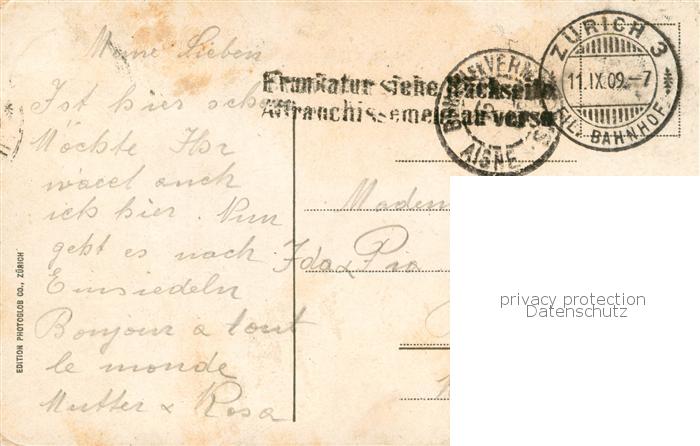 Meine Lieben
Ist hier schön
Möchte Ihr
wäret auch
ich hier. Nun
geht es nach
Einsiedeln
Bonjour a tout
le monde
Mutter & Rosa
EDITION PHOTOGLOB CO., ZÜRICH
Frankatur siehe Rückseite
Affranchissement au verso
AIGLE
ZÜRICH 3
11.IX.09.-7
FIL. BAHNHOF
Madem
Ida & Pia
privacy protection
Datenschutz